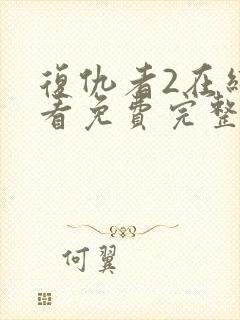 復仇者2在
看免費完整
何翼